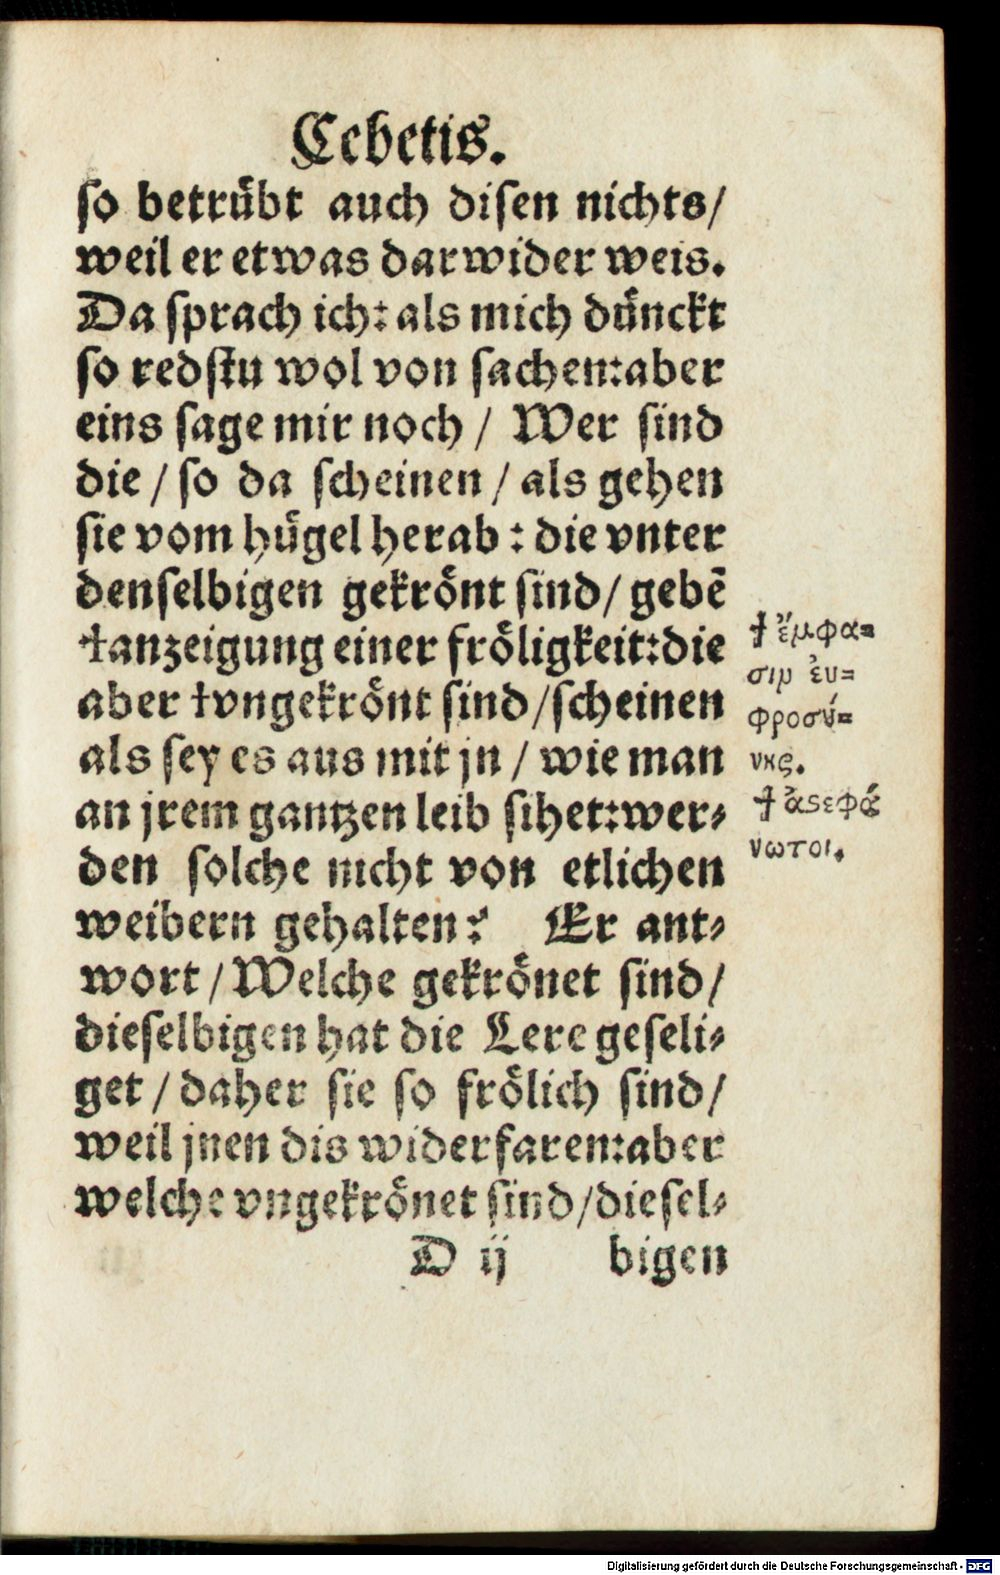 Cebetis.
so betrübt auch disen nichts/
weil er etwas darwider weis.
Da sprach ich: als mich dünckt
so redstu wol von sachen: aber
eins sage mir noch / Wer sind
die / so da scheinen / als gehen
sie vom hügel herab: die vnter
denselbigen gekrönt sind/ gebē
†anzeigung einer fröligkeit: die
aber †vngekrönt sind/scheinen
als sey es aus mit jn / wie man
an jrem gantzen leib sihet: wer-
den solche nicht von etlichen
weibern gehalten? Er ant-
wort / Welche gekrönet sind/
dieselbigen hat die Lere geseli-
get / daher sie so frölich sind/
weil jnen dis widerfaren: aber
welche vngekrönet sind/diesel-
D ij bigen
† ἔμφα-
σιν ἐυ-
φροσύ-
νης.
† ἀϛεφά
νωτοι.
Digitalisierung gefördert durch die Deutsche Forschungsgemeinschaft - DFG